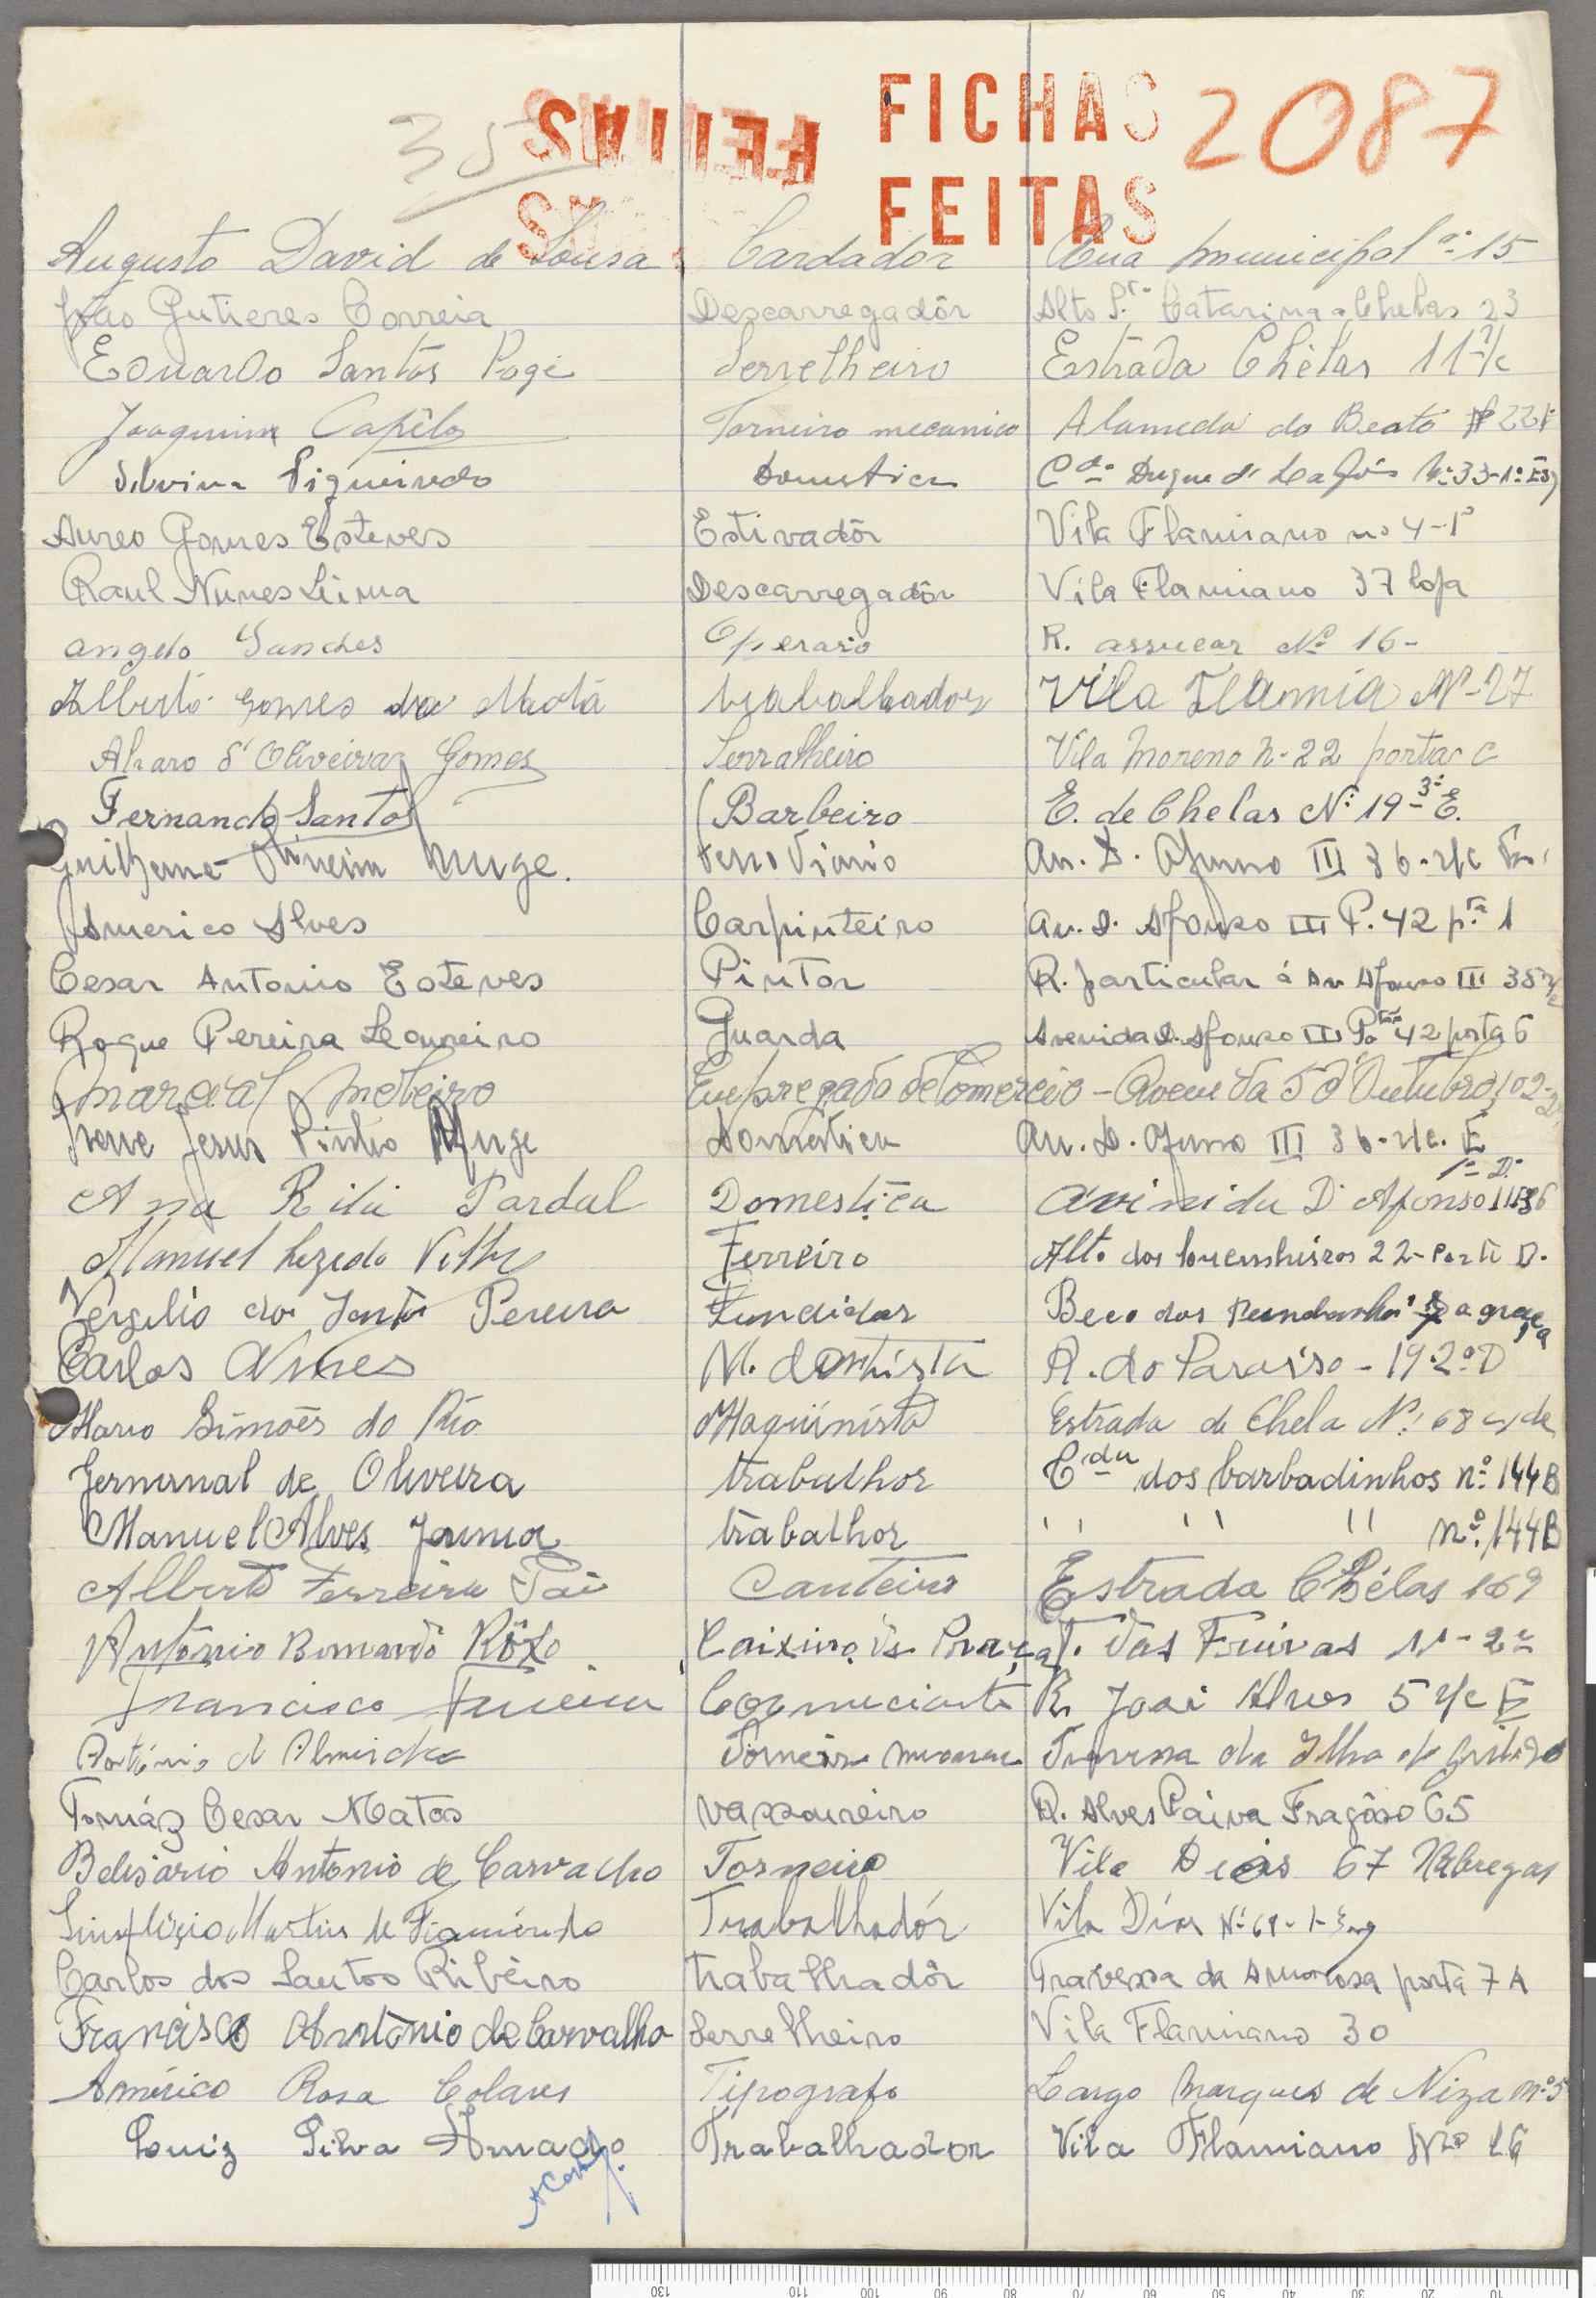 FICHAS 2087
35 FEITAS
FEITAS
Augusto David de Sousa Cardador Rua Municipal nº 15
João Gutieres Correia Descarregadôr Alto S.ta Catarina a Chelas 23
Eduardo Santos Page Serrelheiro Estrada Chélas 11 r/c
Joaquim Capêlo Torneiro mecanico Alameda do Beato 22
Silvina Figueiredo Domestica Cda Duque de Lafões Nº 33-1º Esq
Aureo Gomes Esteves Estivadôr Vila Flamiano no 4-1º
Raul Nunes Lima Descarregadôr Vila Flamiano 37 loja
Angelo Sanches Operario R. assucar Nº 16-
Alberto Gomes da Mota trabalhador Vila Flamia Nº-27
Alvaro d'Oliveira Gomes Serralheiro Vila Moreno N-22 porta C
Fernando Santos Barbeiro E. de Chelas Nº 19-3º E.
Guilherme Oliveira Muge. ferro Viario Av. D. Afonso III 36-r/c
Americo Alves Carpinteiro Av. D. Afonso III P. 42 p.ta 1
Cesar Antonio Esteves Pintor R. particular á Av Afonso III 35 r/c
Roque Pereira Loureiro Guarda Avenida D. Afonso III 42 porta 6
Marcial Moteiro Empregado de Comercio - Avenida 5 d'Outubro 102-2
Irene Jesus Pinho Muge Domestica Av. D. Afonso III 36-r/c. E
Ana Rita Pardal Domestica Avinida D. Afonso III 36 1º D.
Manuel Ferreiro Alto dos Toucinheiros 22-Porta D.
Vergilio dos Santos Pereira Fundidor Beco dos a graça
Carlos Nunes M. dentista R. do Paraiso - 19 2º D
Mario Simões do Rio Maquinista Estrada de Chela Nº 68 c/ de
Germinal de Oliveira trabalhor Cda dos barbadinhos nº 144B
Manuel Alves Junior trabalhor " " " nº 144B
Alberto Ferreira Pai Canteiro Estrada Chélas 169
António Bernardo Rôxo Caixeiro de Praça T. das Freiras 11-2º
Francisco Ferreira Comerciante R. José Alves 5 r/c E
António d'Almeida Torneiro mecanico Travessa da Ilha do Grilo
Tomáz Cesar Matos Vassoureiro R. Alves Paiva Fragôso 65
Belisario Antonio de Carvalho Torneiro Vila Deias 67 Xabregas
Martins de Figueiredo Trabalhadór Vila Dias Nº 69-1-Esq
Carlos dos Santos Ribeiro trabalhadôr Travessa da Amorosa porta 7 A
Francisco António de Carvalho Serrelheiro Vila Flamiano 30
Américo Rosa Colares Tipografo Largo Marques de Niza nº 5
Luiz Silva Amado Trabalhador Vila Flamiano Nº 16
130 110 100 90 80 70 60 50 40 30 20 10